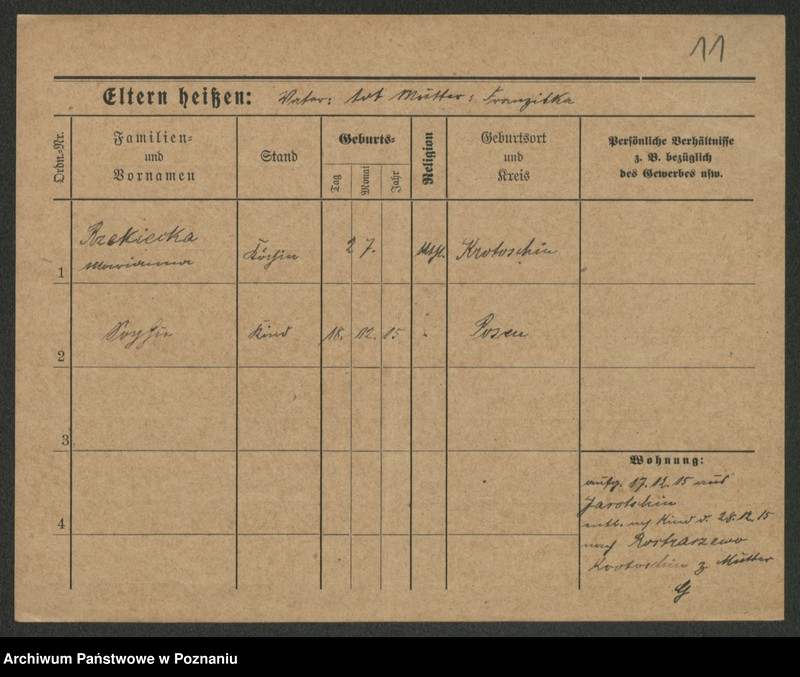 11
Eltern heißen: Vater: tot Mutter: Franziska
Ordn.-Nr.
Familien-
und
Vornamen
Stand
Geburts-
Tag
Monat
Jahr
Religion
Geburtsort
und
Kreis
Persönliche Verhältnisse
z. B. bezüglich
des Gewerbes usw.
1
Rzekiecka
Marianna
Köchin
27.
kath.
Krotoschin
2
Sophie
Kind
18. 12. 15
-
Posen
3
4
Wohnung:
aufg. 17.12.15 aus
Jarotschin
entl. mit Kind d. 28.12.15
nach Rostrazewo
Krotoschin z. Mutter
G
Archiwum Państwowe w Poznaniu